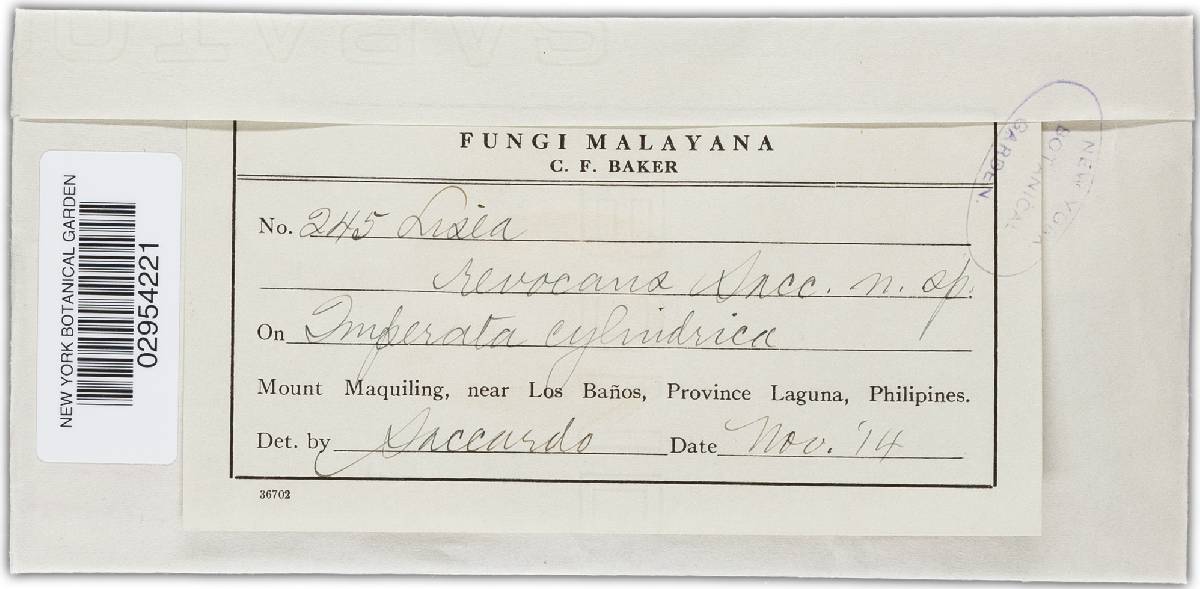 FUNGI MALAYANA
C. F. BAKER
No. 245 Lisea
revocans Sacc. n. sp.
On Imperata cylindrica
Mount Maquiling, near Los Baños, Province Laguna, Philipines.
Det. by Saccardo Date Nov. '14
36702
NEW YORK BOTANICAL GARDEN
02954221
NEW YORK
BOTANICAL
GARDEN.